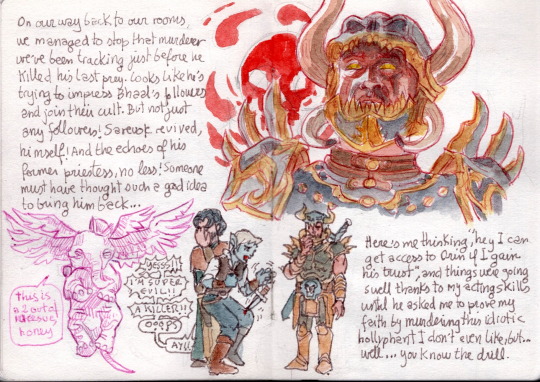 On our way back to our rooms,
we managed to stop that murderer
we've been tracking just before he
killed his last prey. Looks like he's
trying to impress Bhaal's followers
and join their cult. But not just
any followers! Sarevok revived,
himself! And the echoes of his
former priestess, no less! Someone
must have thought such a good idea
to bring him back...
this is
a 2 out of
massive,
honey
YESSS!!
I'M SUPER
EVIL!!
A KILLER!!
OOOPS
AY!!
Here's me thinking "hey I can
get access to Orin if I gain
his trust", and things were going
swell thanks to my acting skills
until he asked me to prove my
faith by murdering this idiotic
hollyphant I don't even like, but...
well... you know the drill.